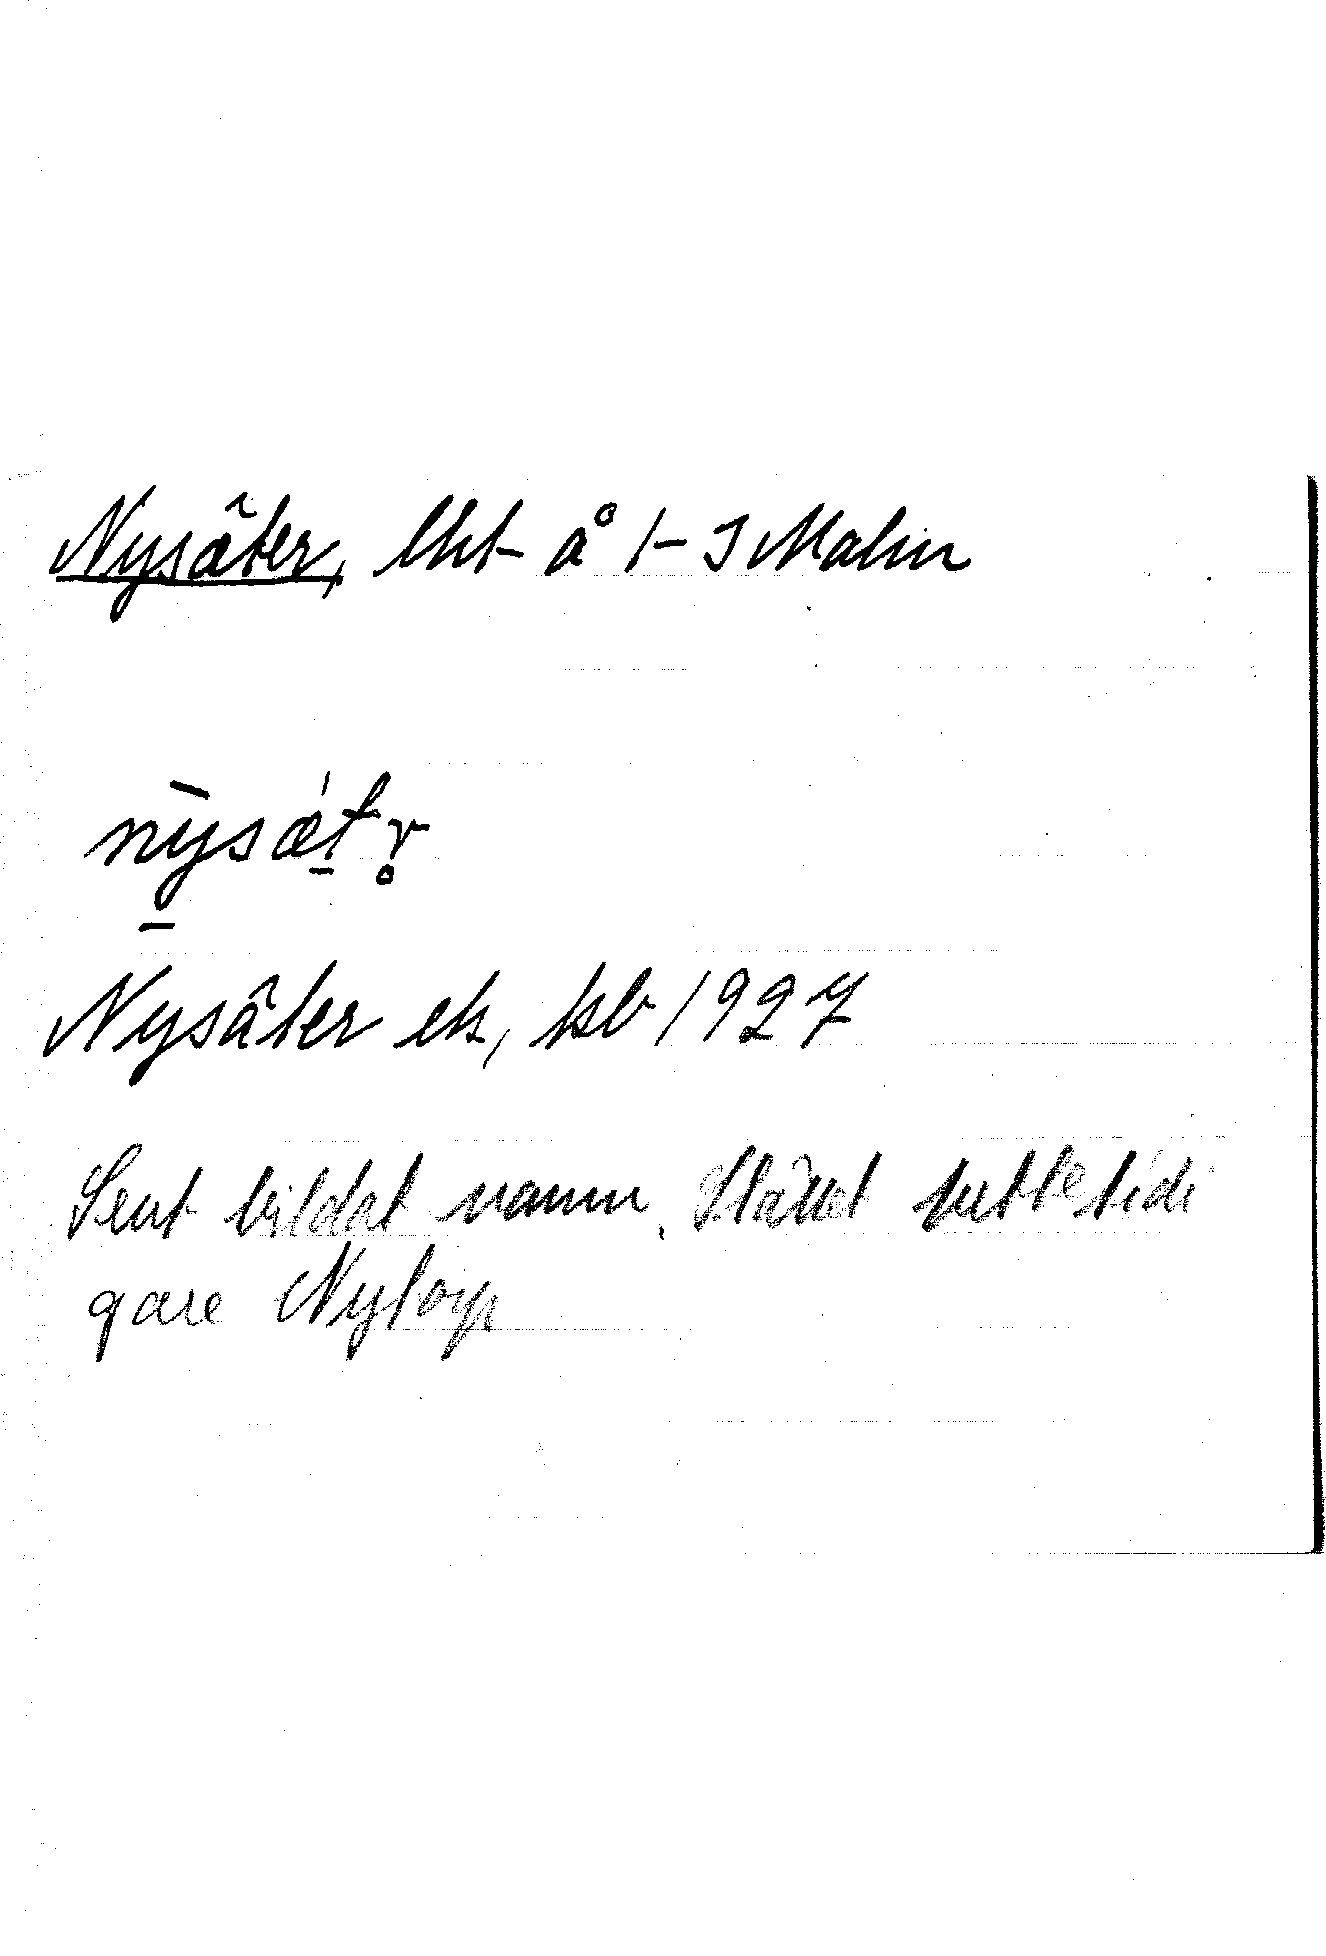 Nysäter, lht å 1-3 Malm
nysǽtr̥
Nysäter ek, kb 1927
Sent bildat namn. Stället hette tidi
gare Nytorp